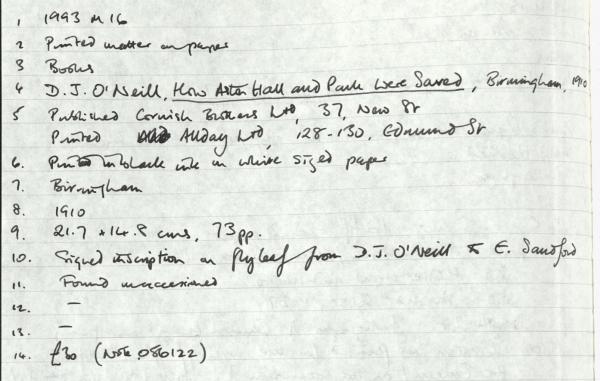 1 1993 M 16
2 Printed matter on paper
3 Books
4 D.J. O'Neill, How Aston Hall and Park Were Saved, Birmingham, 1910
5 Published Cornish Brothers Ltd, 37, New St
Printed Allday Ltd, 128-130, Edmund St
6. Printed in black ink on white sized paper
7. Birmingham
8. 1910
9. 21.7 x 14.8 cms, 73pp.
10. Signed inscription on flyleaf from D.J. O'Neill to E. Sandford
11. Found unaccessioned
12. –
13. –
14. £30 (Note 080122)